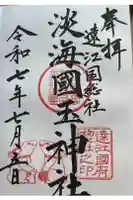 奉拝
遠江国総社
淡海國玉神社
令和七年七月五日
遠江國府
総社之印